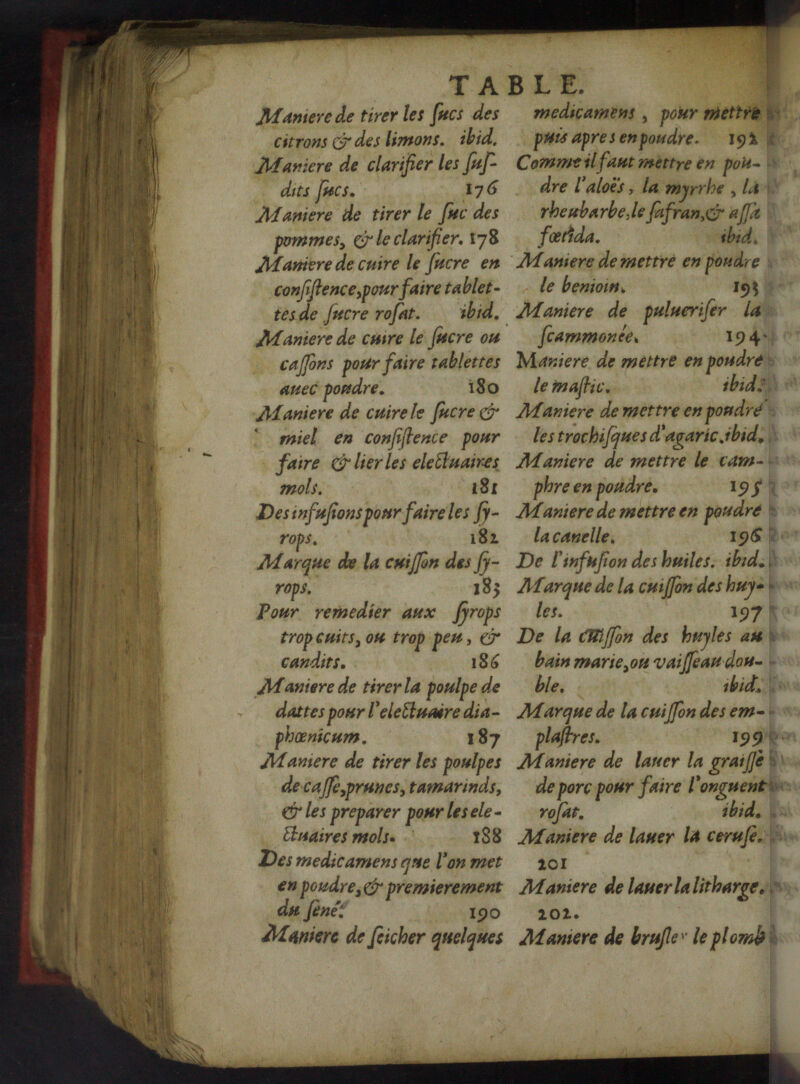 TABLE.
Maniere de tirer les ſucs des
citrons & des limons. ibid.
Maniere de clarifier les ſuſ-
dits ſucs. 176
Maniere de tirer le ſuc des
pommes, & le clarifier. 178
Maniere de cuire le ſucre en
conſiſtence, pour faire tablet-
tes de ſucre roſat. ibid.
Maniere de cuire le ſucre ou
caſſons pour faire tablettes
auec poudre. 180
Maniere de cuire le ſucre &
miel en conſiſtence pour
faire & lier les electuaires
mols. 181
Des infuſions pour faire les ſy-
rops. 182
Marque de la cuiſſon des ſy-
rops. 183
Pour remedier aux ſyrops
trop cuits, ou trop peu, &
candits. 186
Maniere de tirer la poulpe de
dattes pour l'electuaire dia-
phœnicum. 187
Maniere de tirer les poulpes
de caſſe, prunes, tamarinds,
& les preparer pour les ele-
ctuaires mols. 188
Des medicamens que l'on met
en poudre, & premierement
du ſené. 190
Maniere de ſeicher quelques
medicamens, pour mettre
puis apres en poudre. 192
Comme il faut mettre en pou-
dre l'aloës, la myrrhe, la
rheubarbe, le ſafran, & aſſa
fœtida. ibid.
Maniere de mettre en poudre
le benioin. 193
Maniere de pulueriſer la
ſcammonée. 194
Maniere de mettre en poudre
le maſtic. ibid.
Maniere de mettre en poudre
les trochiſques d'agaric. ibid.
Maniere de mettre le cam-
phre en poudre. 195
Maniere de mettre en poudre
la canelle. 196
De l'infuſion des huiles. ibid.
Marque de la cuiſſon des huy-
les. 197
De la cuiſſon des huyles au
bain marie, ou vaiſſeau dou-
ble. ibid.
Marque de la cuiſſon des em-
plaſtres. 199
Maniere de lauer la graiſſe
de porc pour faire l'onguent
roſat. ibid.
Maniere de lauer la ceruſe.
201
Maniere de lauer la litharge.
202.
Maniere de bruſler le plomb